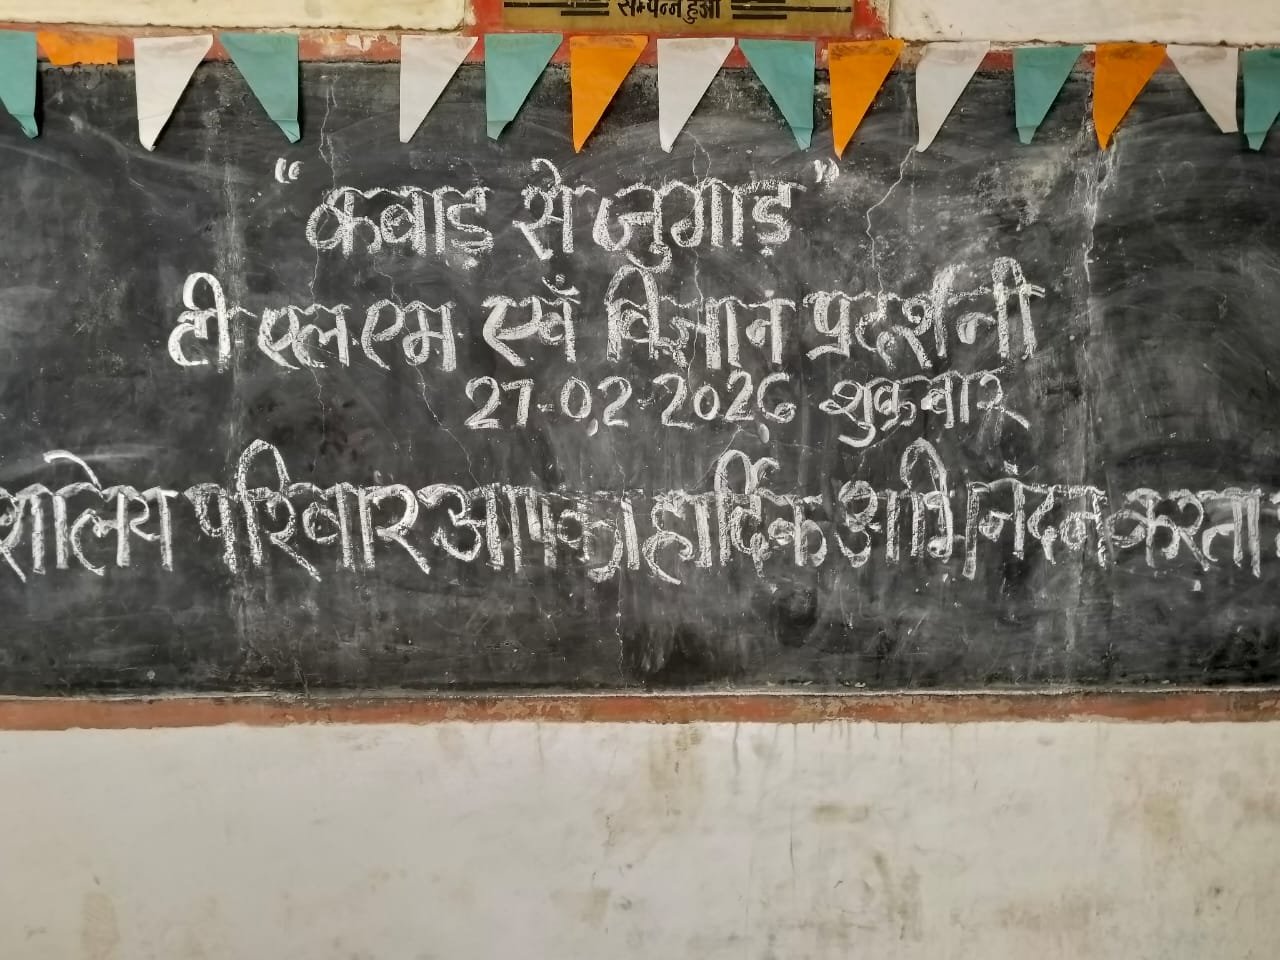 सम्पन्न हुआ
"कबाड़ से जुगाड़"
टी एल.एम. एवँ विज्ञान प्रदर्शनी
27-02-2026 शुक्रबार
शालेय परिबार आपका हार्दिक अभिनंदन करता